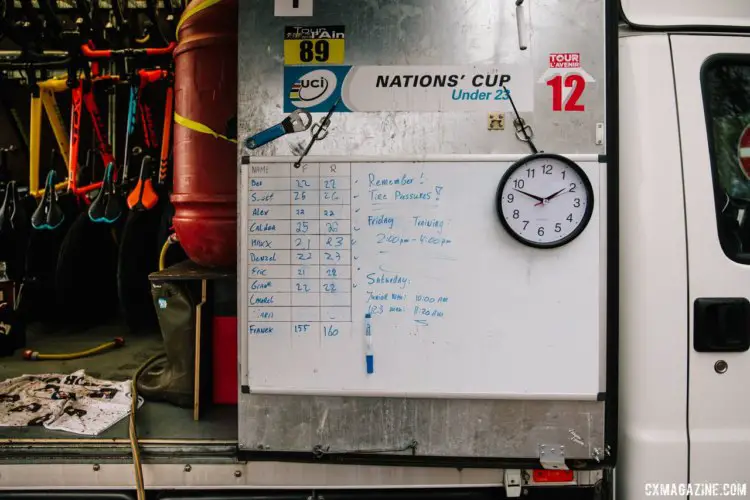 T
Tour
de l'Ain
89
uci
NATIONS' CUP
Under 23
TOUR
L'AVENIR
12
NAME F R
Ben 22 22
26 26
Alex 22 22
Caldar 25
Maxx 21 23
Denzel 22 23
Eric 21 22
Grant 22 22
Laurel
Franek 155 160
Remember!
Tire Pressures!!
Friday Training:
2:00pm - 4:00pm
Saturday:
Junior Men: 10:00 AM
U23 men: 11:20 AM
12
1
2
3
4
5
6
7
8
9
10
11
CXMAGAZINE.COM